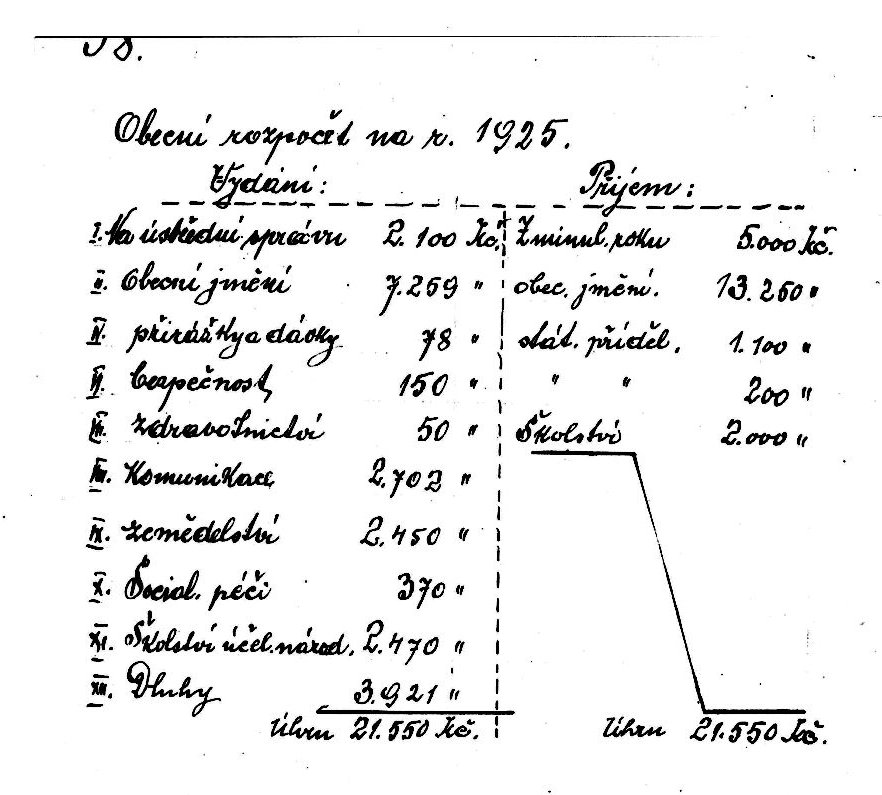 Obecní rozpočet na r. 1925.
Vydání: Příjem:
I. Na ústřední správu 2.100 Kč. Z minul. roku 5.000 Kč.
II. Obecní jmění 7.259 " obec. jmění. 13.250 "
IV. přirážky a dávky 78 " stát. příděl. 1.100 "
VI. bezpečnost 150 " " " 200 "
VII. Zdravotnictví 50 " Školství 2.000 "
VIII. Komunikace 2.702 "
IX. zemědělství 2.450 "
X. Social. péči 370 "
XI. Školství účel. národ. 2.470 "
XII. Dluhy 3.921 "
Úhrn 21.550 Kč. Úhrn 21.550 Kč.